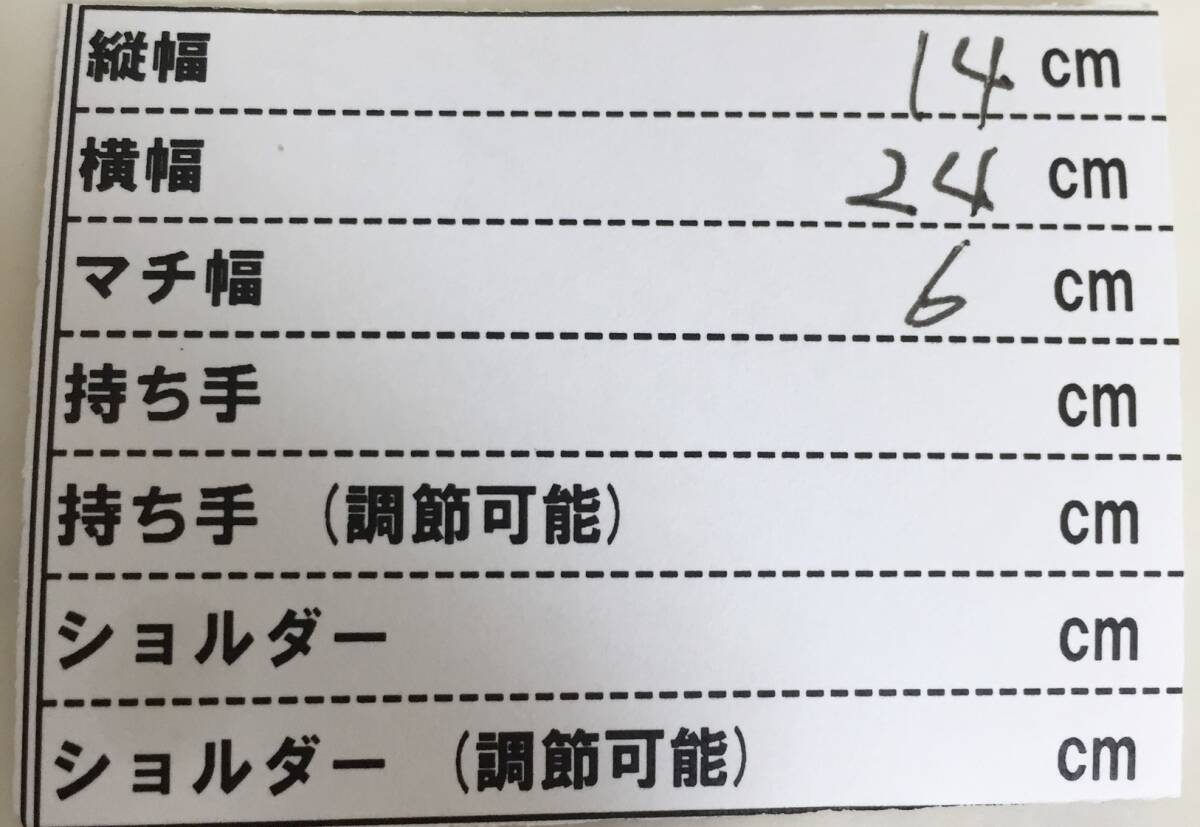 縦幅 14 cm
横幅 24 cm
マチ幅 6 cm
持ち手 cm
持ち手 (調節可能) cm
ショルダー cm
ショルダー (調節可能) cm